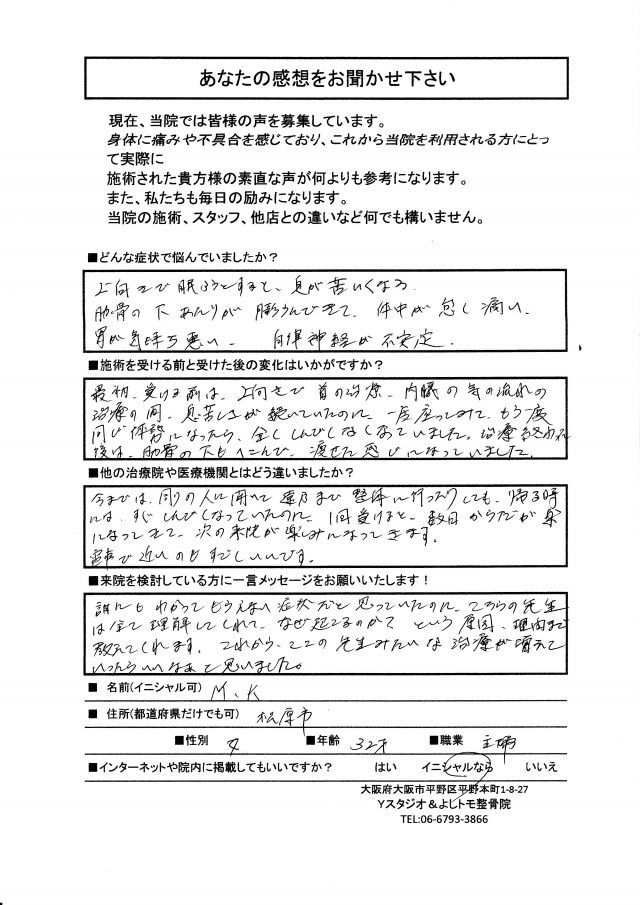 あなたの感想をお聞かせ下さい
現在、当院では皆様の声を募集しています。
身体に痛みや不具合を感じており、これから当院を利用される方にとっ
て実際に
施術された貴方様の素直な声が何よりも参考になります。
また、私たちも毎日の励みになります。
当院の施術、スタッフ、他店との違いなど何でも構いません。
■どんな症状で悩んでいましたか？
上向きで眠ろうとすると、息が苦しくなる。
肋骨の下あたりが膨らんできて、体中が怠く痛い。
胃が気持ち悪い。 自律神経が不安定。
■施術を受ける前と受けた後の変化はいかがですか？
最初、受ける前は、上向きで首の治療、内臓の気の流れの
治療の間、息苦しさが続いていたのに、一度座ってみて、もう一度
同じ体勢になったら、全くしんどくなくなっていました。治療を終われ
後は、肋骨の下もへこんで、痩せた感じになっていました。
■他の治療院や医療機関とはどう違いましたか？
今までは、周りの人に聞いて遠方まで整体に行ったりしても、帰る時
には、すぐしんどくなっていたのに、1回受けると、数日からだが楽
になってきて、次の来院が楽しみになってきます。
電車で近いのもすごくいいです。
■来院を検討している方に一言メッセージをお願いいたします！
誰にもわかってもらえない症状だと思っていたのに、こちらの先生
は全て理解してくれて、なぜ起こるのか？という原因、理由まで
教えてくれます。これから、ここの先生みたいな治療が増えて
いったらいいなぁと思いました。
■ 名前(イニシャル可) M.K
■ 住所(都道府県だけでも可) 松原市
■性別 女 ■年齢 32才 ■職業 主婦
■インターネットや院内に掲載してもいいですか？ はい イニシャルなら いいえ
大阪府大阪市平野区平野本町1-8-27
Yスタジオ＆よしトモ整骨院
TEL:06-6793-3866